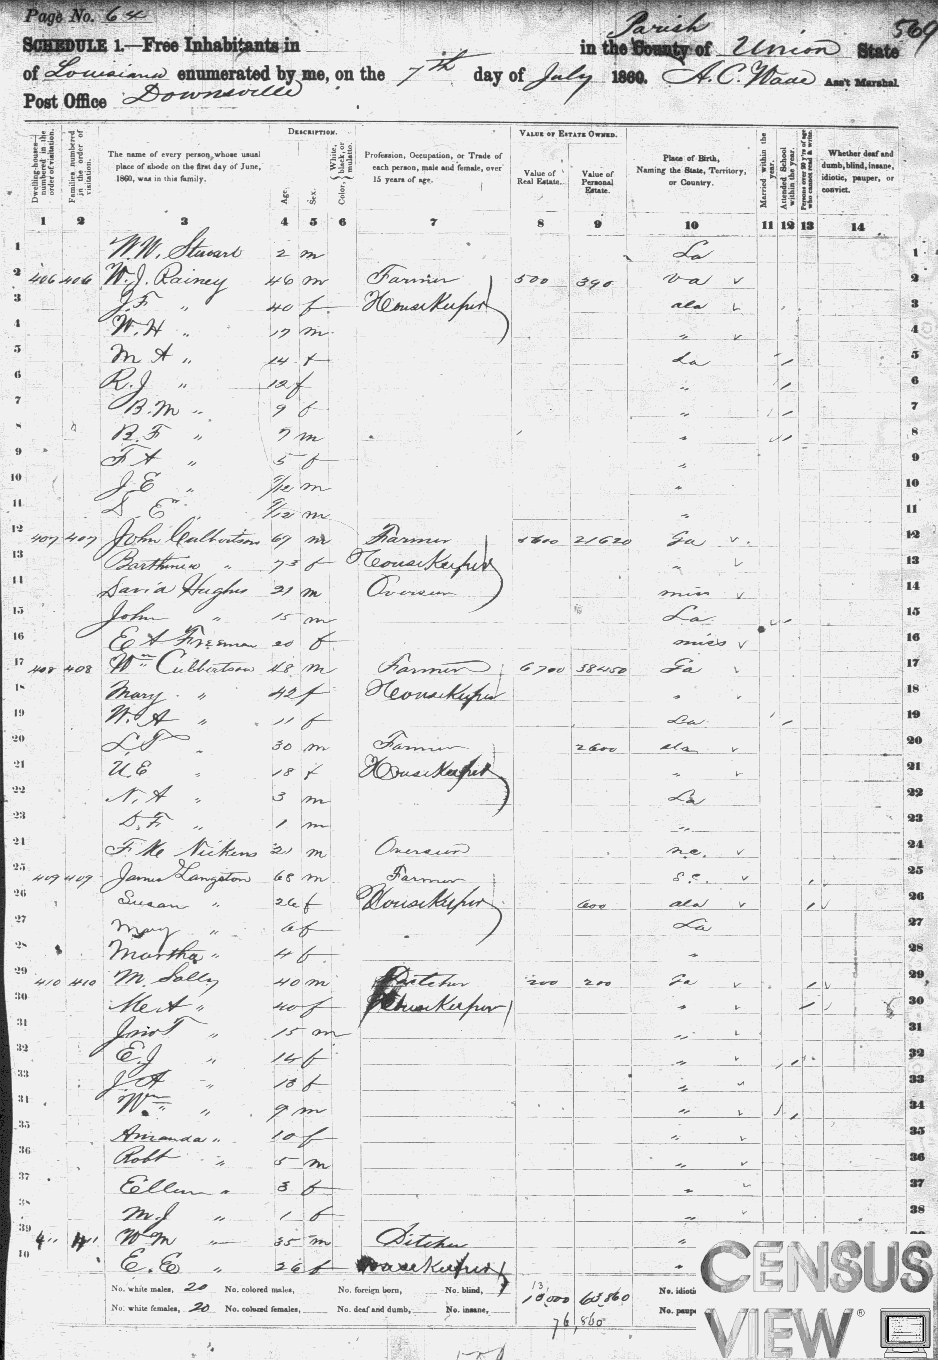 Page No. 64
Parish 569
SCHEDULE 1.—Free Inhabitants in in the County of Union State
of Louisiana enumerated by me, on the 7th day of July 1860. A. C. Wade Ass't Marshal.
Post Office Downsville
DESCRIPTION. VALUE OF ESTATE OWNED.
Dwelling-houses—numbered in the order of visitation. Families numbered in the order of visitation. The name of every person whose usual place of abode on the first day of June, 1860, was in this family. Age. Sex. Color, White, black, or mulatto. Profession, Occupation, or Trade of each person, male and female, over 15 years of age. Value of Real Estate. Value of Personal Estate. Place of Birth, Naming the State, Territory, or Country. Married within the year. Attended School within the year. Persons over 20 y'rs of age who cannot read & write. Whether deaf and dumb, blind, insane, idiotic, pauper, or convict.
1 2 3 4 5 6 7 8 9 10 11 12 13 14
1 W. W. Steward 2 m La 1
2 406 406 W. J. Rainey 46 m Farmer 500 390 Va 2
3 J. F " 40 f HouseKeeper ala 3
4 W. H " 17 m " 4
5 M A " 14 f La 5
6 R. J " 12 f " 6
7 B. M " 9 f " 7
8 B. F " 7 m " 8
9 F A " 5 f " 9
10 J. E " 9/12 m " 10
11 S. E " 9/12 m " 11
12 407 407 John Culbertson 69 m Farmer 21620 Ga 12
13 " 73 f HouseKeeper " 13
14 David Hughes 21 m Overseer miss 14
15 John " 15 m La 15
16 E A Freeman 20 f miss 16
17 408 408 Wm Culbertson 48 m Farmer 6700 38450 Ga 17
18 Mary " 42 f HouseKeeper " 18
19 W. A " 11 f La 19
20 L T " 30 m Farmer 2600 ala 20
21 U E " 18 f HouseKeeper " 21
22 N. A " 3 m La 22
23 D. F " 1 m " 23
24 Nickens 21 m Overseer n.c. 24
25 409 409 James Langston 68 m Farmer S.C. 25
26 Susan " 26 f HouseKeeper 600 ala 26
27 Mary " 6 f La 27
28 Martha " 4 f " 28
29 410 410 M. Solly 40 m Ditcher 200 200 Ga 29
30 " 40 f HouseKeeper " 30
31 " 15 m " 31
32 E. J " 14 f " 32
33 J A " 13 f " 33
34 Wm " 9 m " 34
35 Amanda " 10 f " 35
36 Robt " 5 m " 36
37 Ellen " 3 f " 37
38 M. J " 1 f " 38
39 W M " 35 m Ditcher "
40 E. E " 26 f HouseKeeper "
No. white males, 20 No. colored males, No. foreign born, No. blind, 13,000 63,860 No. idiotic
No. white females, 20 No. colored females, No. deaf and dumb, No. insane, 76,860
CENSUS
VIEW®